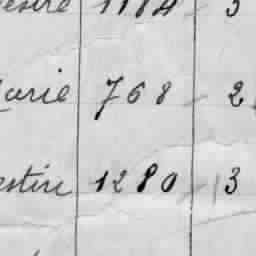 1184 3
Marie 768 2
estine 1280 3